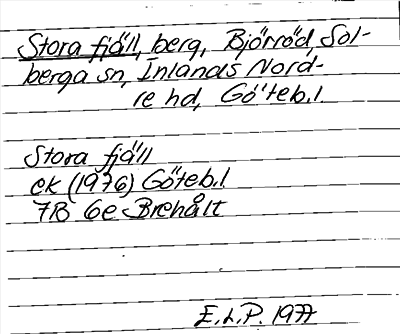 Stora fjäll, berg, Björröd, Sol-
berga sn, Inlands Nord-
re hd, Göteb.l.
Stora fjäll
ek (1976) Göteb.l
7B 6e Brehålt
E.L.P. 1977